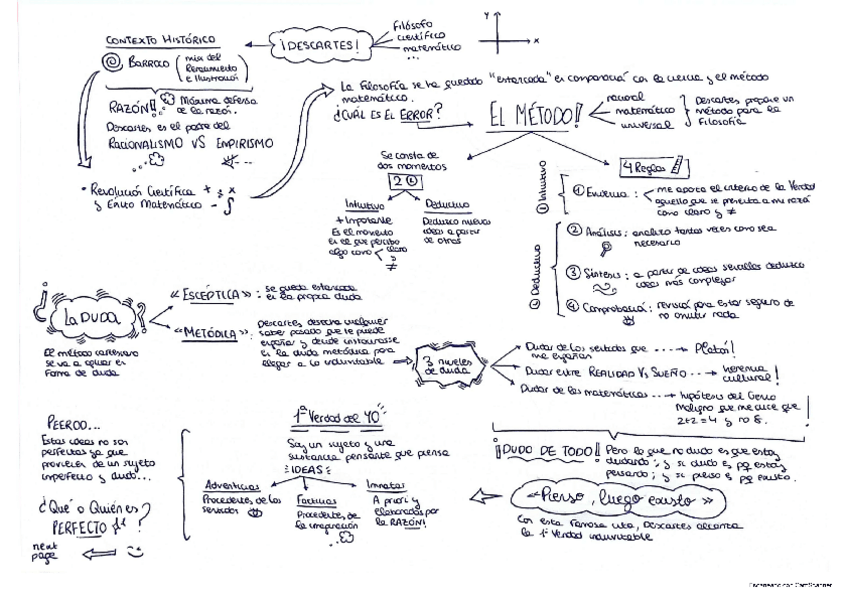 CONTEXTO HISTÓRICO
BARROCO (mix del
Renacimiento
e Ilustración
¡DESCARTES!
Filósofo
científico
matemático
...
Y
x
RAZÓN!! Máxima defensa
de la razón.
Descartes es el padre del
RACIONALISMO VS EMPIRISMO
• Revolución Científica + ÷ x
y Éxito Matemático - ∫
La Filosofía se ha quedado "estancada" en comparación con la ciencia y el método
matemático.
¿CUÁL ES EL ERROR?
EL MÉTODO!
racional
matemático
universal
Descartes propone un
método para la
Filosofía
Se consta de
dos momentos
2
Intuitivo
+ Importante
Es el momento
en el que percibo
algo como claro
y ≠
Deductivo
Deduzco nuevas
ideas a partir
de otras
4 Reglas
① Intuitivo
① Evidencia: me aporta el criterio de la Verdad
aquello que se presenta a mi razón
como claro y ≠
② Deductivo
② Análisis: analizo tantas veces como sea
necesario
③ Síntesis: a partir de ideas sencillas deduzco
ideas más complejas
④ Comprobación: revisión para estar seguro de
no omitir nada.
¿La DUDA?
El método cartesiano
se va a aplicar en
forma de duda
"ESCÉPTICA": se queda estancada
en la propia duda
"METÓDICA": Descartes, desecha cualquier
saber pasado que le puede
engañar y decide instaurarse
en la duda metódica para
llegar a lo indudable
3 niveles
de duda
Dudar de los sentidos que ....→ Platón!
me engañan
Dudar entre REALIDAD VS SUEÑO ...→ herencia
cultural!
Dudar de las matemáticas ...→ hipótesis del Genio
Maligno que me dice que
2+2=4 y no 8. !
¡DUDO DE TODO! Pero lo que no dudo es que estoy
dudando; y si dudo es pq estoy
pensando; y si pienso es pq existo.
"Pienso, luego existo"
Con esta famosa cita, Descartes alcanza
la 1ª Verdad indudable
1ª Verdad del YO"
Soy un sujeto y una
sustancia pensante que piensa
IDEAS
Adventicias
Procedentes de los
sentidos
Facticias
Procedentes de
la imaginación
Innatas
A priori y
elaboradas por
la RAZÓN!
PEEROO...
Estas ideas no son
perfectas ya que
provienen de un sujeto
imperfecto y dudo...
¿Qué o Quién es
PERFECTO ?
next
page
Escaneado con CamScanner